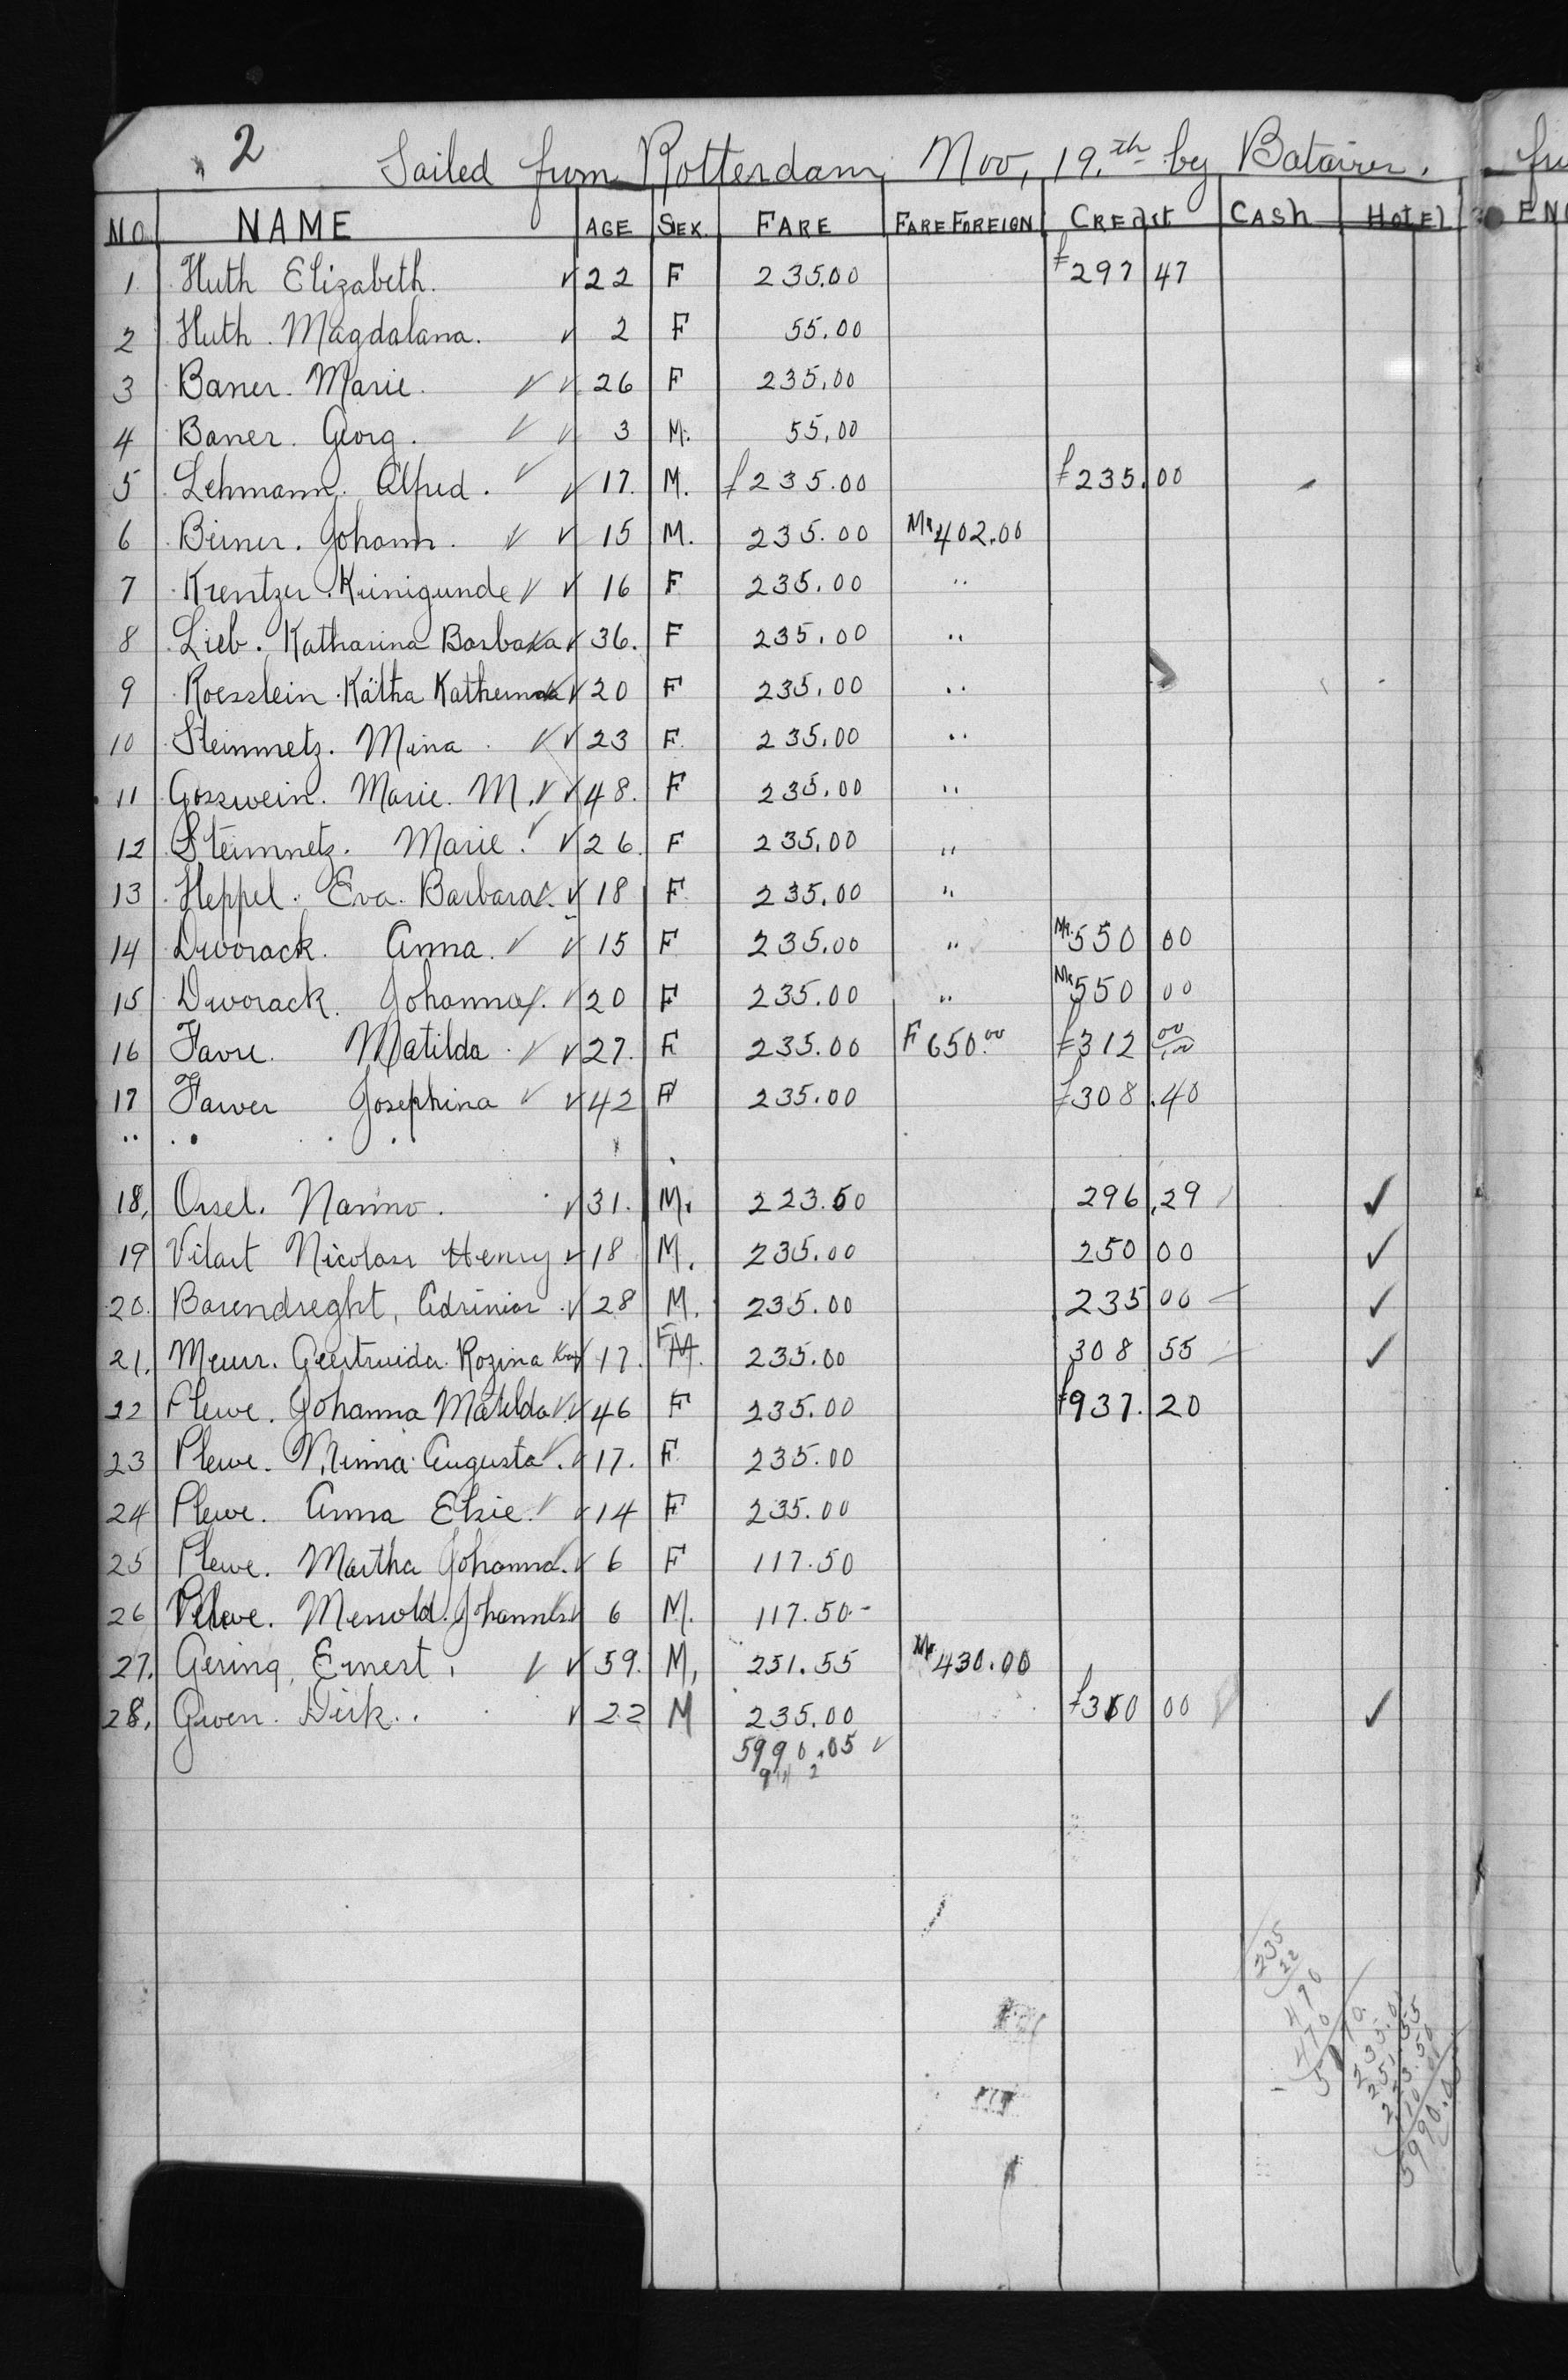 2
Sailed from Rotterdam, Nov, 19.th by Batavier.
NO. NAME AGE SEX. FARE FARE FOREIGN CREDIT CASH HOTEL
1 Huth Elizabeth. ✓ 22 F 235.00 £297 47
2 Huth. Magdalana. ✓ 2 F 55.00
3 Baner. Marie. ✓ ✓ 26 F 235.00
4 Baner. Georg. ✓ ✓ 3 M. 55.00
5 Lehmann. Alfred. ✓ ✓ 17. M. £235.00 £235.00
6 Beiner. Johann. ✓ ✓ 15 M. 235.00 Mk 402.00
7 Krentzer. Kunigunde ✓ ✓ 16 F 235.00 "
8 Lieb. Katharina Barbara ✓ 36. F 235.00 "
9 Roesslein. Kätha ✓ 20 F 235.00 "
10 Steinmetz. Mina. ✓ ✓ 23 F. 235.00 "
11 Gosswein. Marie. M. ✓ ✓ 48. F 235.00 "
12 Steinmetz. Marie. ✓ ✓ 26. F 235.00 "
13 Heppel. Eva. Barbara. ✓ ✓ 18 F 235.00 "
14 Dworack. Anna. ✓ ✓ 15 F 235.00 " Mk. 550 00
15 Dworack. Johanna. ✓ 20 F 235.00 " Mk 550 00
16 Favre. Matilda. ✓ ✓ 27. F 235.00 F 650.00 £312 00
17 Fawer Josephina ✓ ✓ 42 F 235.00 £308.40
18, Orsel. Nanno. ✓ 31. M. 223.50 296.29 ✓
19 Vilart Nicolass Henry ✓ 18 M. 235.00 250 00 ✓
20. Barendreght, Adrinior ✓ 28 M. 235.00 235 00 ✓
21. Meurr. Geertruida. Rozina ✓ 17. F 235.00 308 55 ✓
22 Plewe. Johanna Matilda ✓ ✓ 46 F 235.00 £937.20
23 Plewe. Minna Augusta ✓ 17. F 235.00
24 Plewe. Anna Elsie. ✓ ✓ 14 F 235.00
25 Plewe. Martha Johanna. ✓ 6 F 117.50
26 Plewe. Johannes ✓ 6 M. 117.50
27. Gering, Ernest, ✓ ✓ 59. M, 251.55 Mk 430.00
28, Gwen. Dirk. ✓ 22 M 235.00 £310 00 ✓
5990.05 ✓
235
22
470
470
5170.
235.00
251.55
223.50
110.00
5990.05
fu
EN